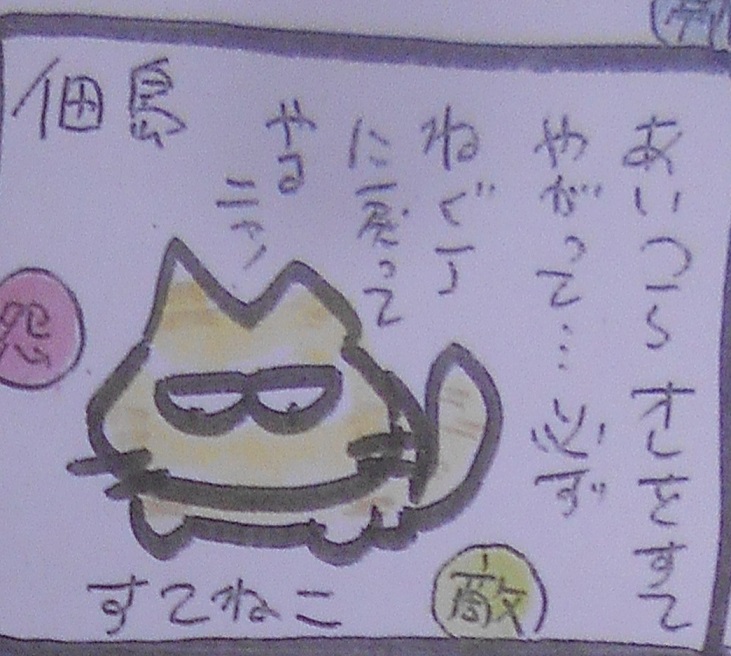 あいつらオレをすて
やがって…必ず
ねぐら
に戻って
やる
ニャ
佃島
怨
敵
すてねこ